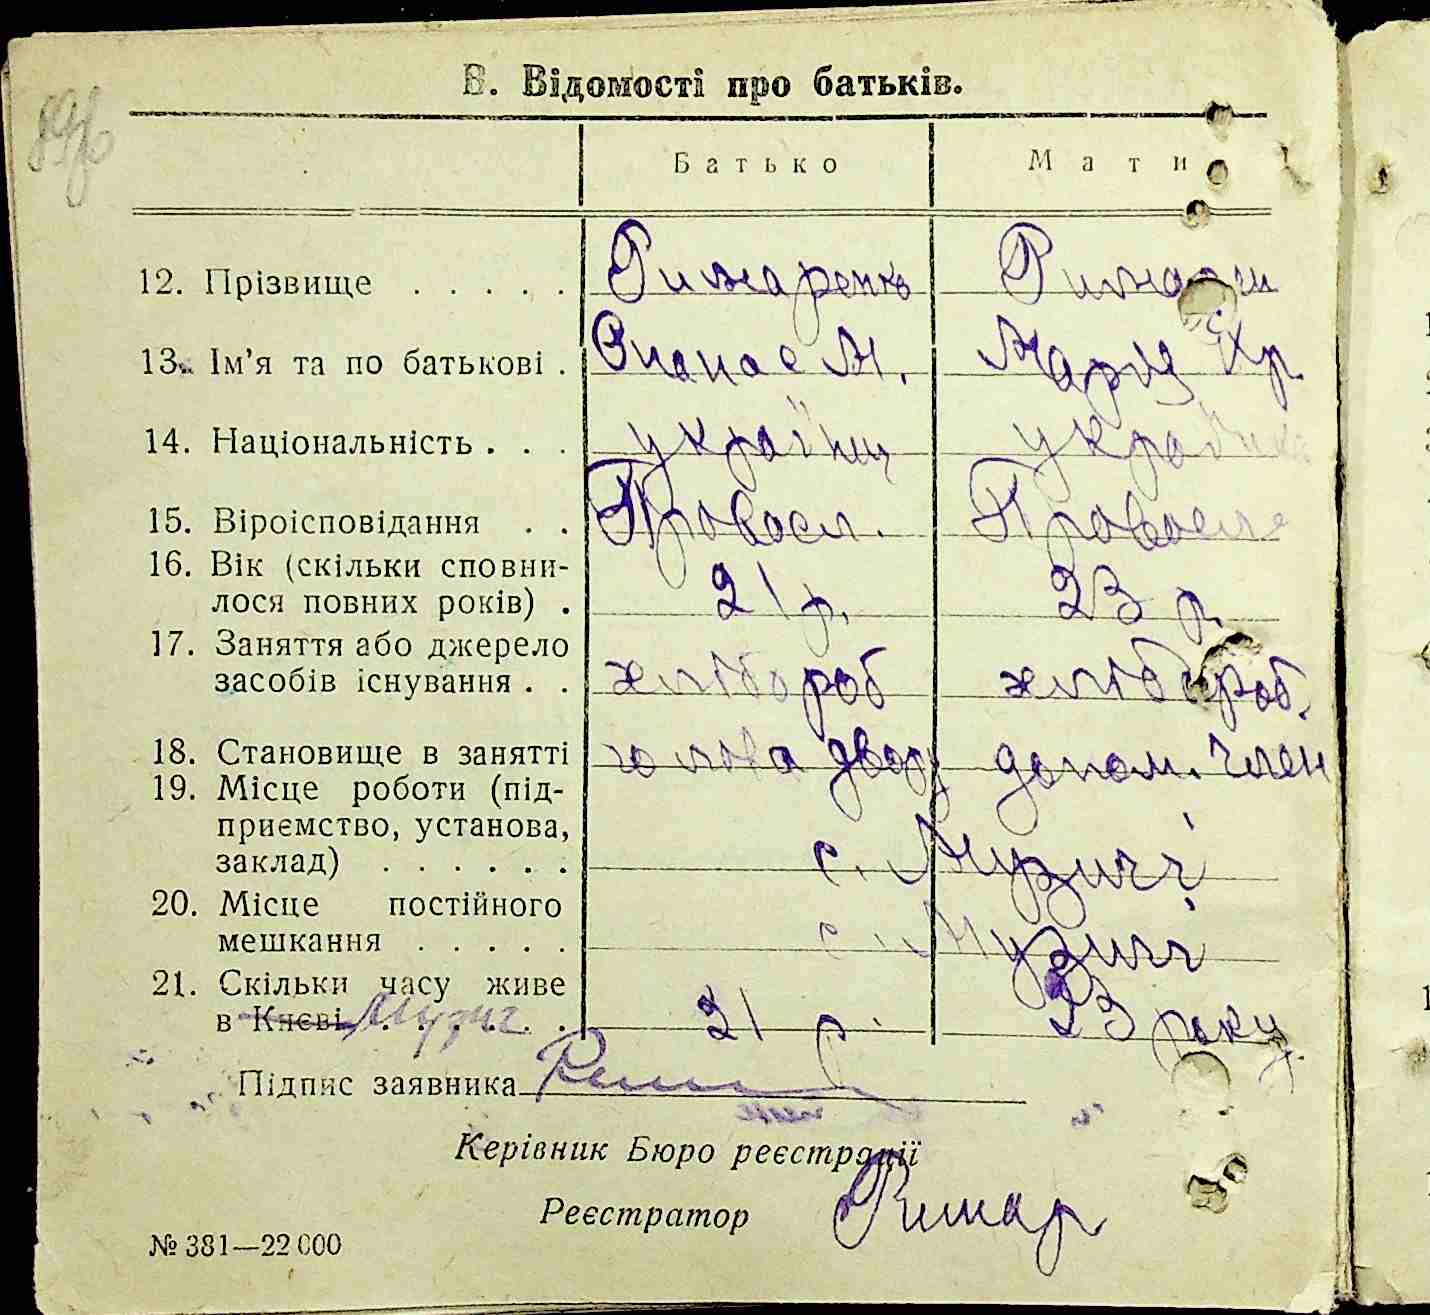 В. Відомості про батьків.
Батько Мати
12. Прізвище . . . . . Римаренко
13. Ім'я та по батькові . Опанас М. Марія Хр.
14. Національність . . . українц україінка
15. Віроісповідання . . Провосл. Провосл
16. Вік (скільки сповни-
лося повних років) . 21 р. 23 р.
17. Заняття або джерело
засобів існування . . хлібороб хлібороб.
18. Становище в занятті голова двору допом. член
19. Місце роботи (під-
приємство, установа,
заклад) . . . . . . с. Музичі
20. Місце постійного
мешкання . . . . . с. Музичі
21. Скільки часу живе
в Києві . . . . . 21 р. 23 року
Підпис заявника
Керівник Бюро реєстрації
Реєстратор Римар
№ 381—22 000